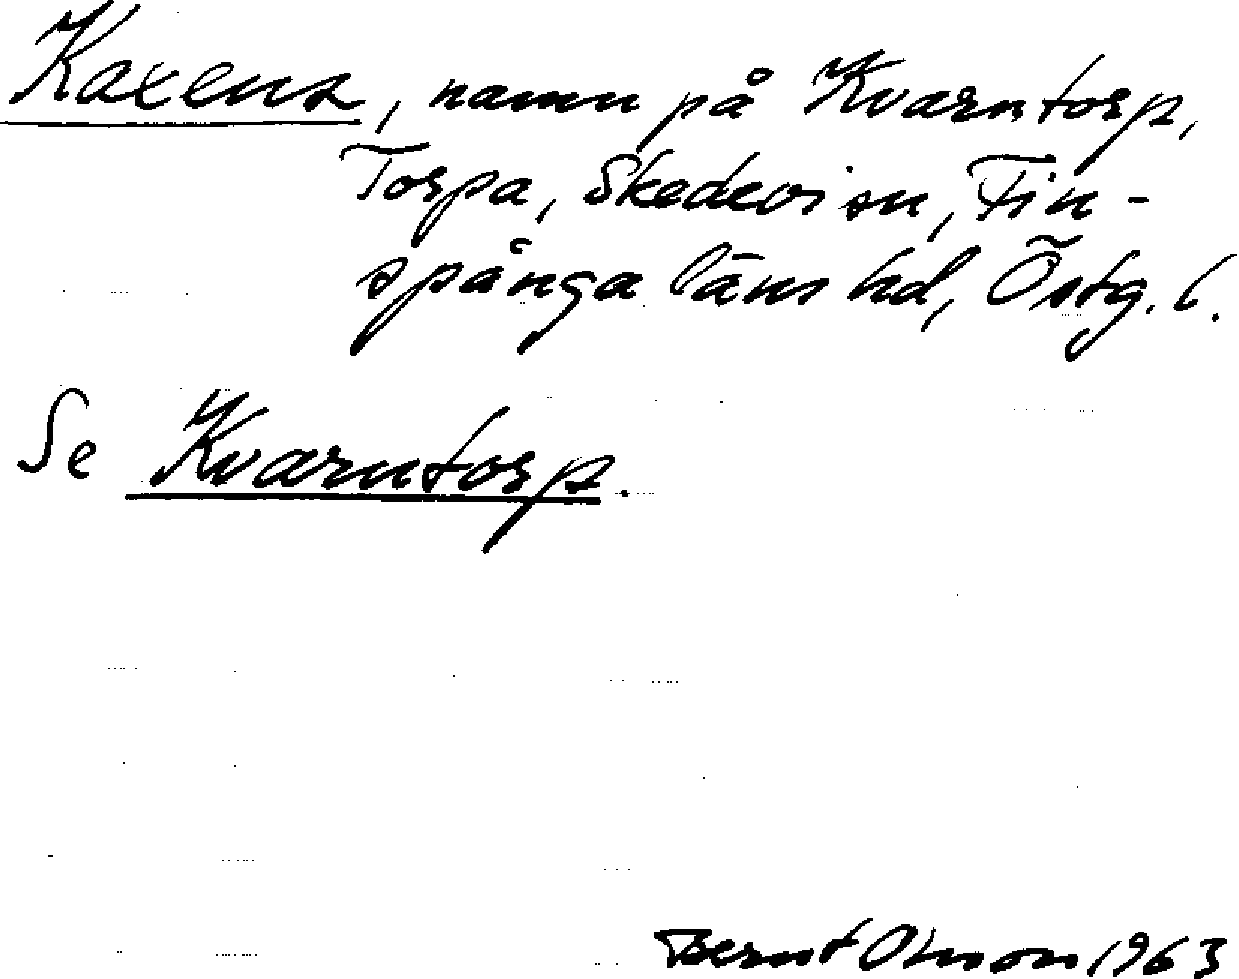 Kaxens, namn på Kvarntorp,
Torpa, Skedevi sn, Fin-
spånga läns hd, Östg. l.
Se Kvarntorp.
Bernt Olsson 1963